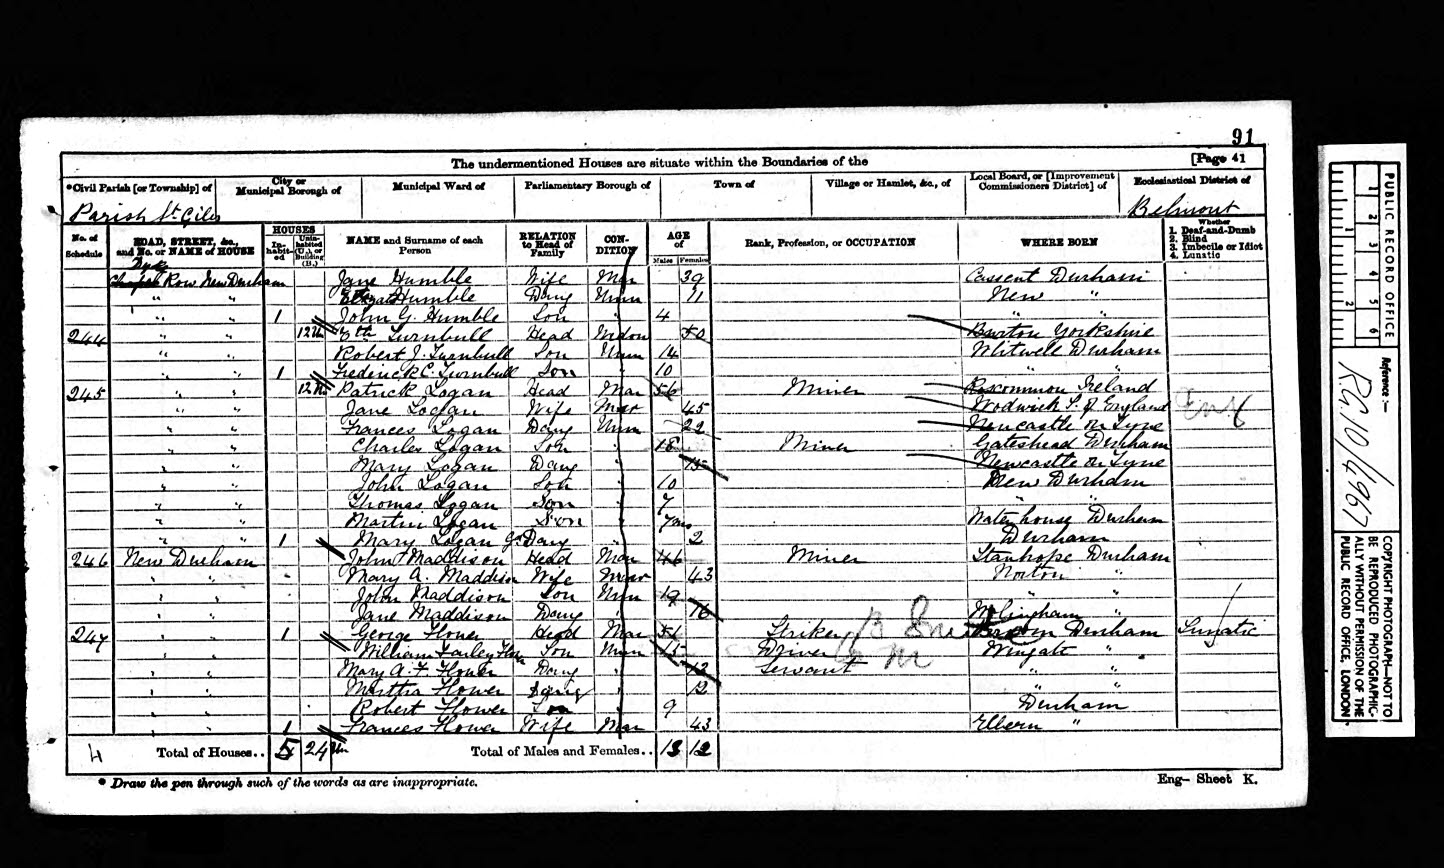 91
The undermentioned Houses are situate within the Boundaries of the [Page 41
*Civil Parish [or Township] of City or Municipal Borough of Municipal Ward of Parliamentary Borough of Town of Village or Hamlet, &c., of Local Board, or [Improvement Commissioners District] of Ecclesiastical District of
Parish St. Giles Belmont
No. of Schedule ROAD, STREET, &c., and No. or NAME of HOUSE HOUSES In-habit-ed Unin-habited (U.), or Building (B.) NAME and Surname of each Person RELATION to Head of Family CON-DITION AGE of Males Females Rank, Profession, or OCCUPATION WHERE BORN Whether 1. Deaf-and-Dumb 2. Blind 3. Imbecile or Idiot 4. Lunatic
Chapel Row New Durham Jane Humble Wife Mar 39 Durham
" " Humble Daug Unm 11 New "
" " 1 John G. Humble Son " 4 " "
244 " " Eth Turnbull Head Widow 50 Yorkshire
" " Robert J. Turnbull Son Unm 14 Durham
" " 1 Frederick C. Turnbull Son " 10 " "
245 " " Patrick Logan Head Mar 56 Miner Roscommon Ireland
" " Jane Logan Wife Mar 45 of England
" " Frances Logan Daug Unm 22 Newcastle on Tyne
" " Charles Logan Son " 18 Miner Gateshead Durham
" " Mary Logan Daug " 15 Newcastle on Tyne
" " John Logan Son " 10 New Durham
" " Thomas Logan Son " 7 " "
" " Martin Logan Son " Waterhouse Durham
" " 1 Mary Logan Daug " 2 Durham
246 New Durham John Maddison Head Mar 46 Miner Stanhope Durham
" " Mary A. Maddison Wife 43 Norton "
" " John Maddison Son Unm 19 " "
" " Jane Maddison Daug " 16 Wolsingham "
247 " " 1 George Flower Head Mar 51 Striker Durham Lunatic
" " William Farley Son Unm 15 Driver Wingate "
" " Mary A. F. Flower Daug " Servant " "
" " Martha Flower Daug " 12 " "
" " Robert Flower Son " 9 Durham
" " 1 Frances Flower Wife Mar 43 "
4 Total of Houses.. 5 Total of Males and Females.. 13 12
* Draw the pen through such of the words as are inappropriate. Eng— Sheet K.
PUBLIC RECORD OFFICE
1 2 3 4 5 6
1 2
Reference :—
RG10/4967
COPYRIGHT PHOTOGRAPH—NOT TO BE REPRODUCED PHOTOGRAPHIC-ALLY WITHOUT PERMISSION OF THE PUBLIC RECORD OFFICE, LONDON